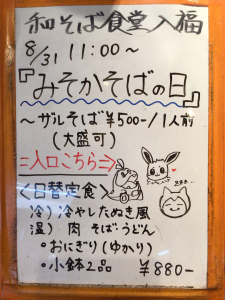 和そば食堂 入福
8/31 11:00～
『みそかそばの日』
～ザルそば ¥500-/1人前
(大盛可)
⇒入口こちら⇒
〈日替定食〉
冷) 冷やしたぬき風
温) 肉 そばうどん
・おにぎり(ゆかり)
・小鉢2品 ¥880-